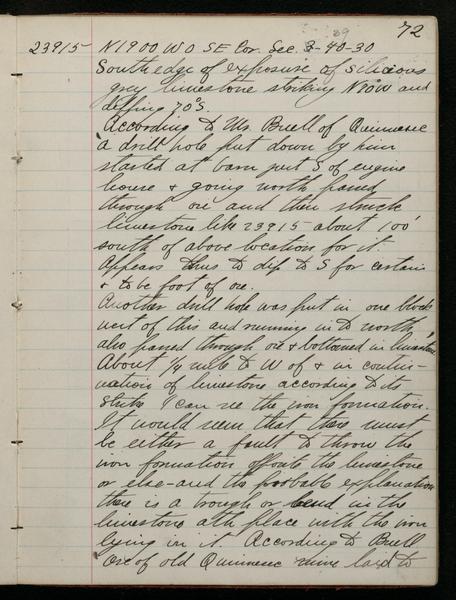 72
23915 N1900 W0 SE Cor. Sec. 3-40-30
South edge of exposure of silicious
grey limestone striking N80W and
dipping 70°S.
According to Mr. Buell of Quinnesec
a drill hole put down by him
started at barn just S of engine
house & going north passed
through ore and then struck
limestone like 23915 about 100'
south of above location for it.
Appears thus to dip to S for certain
& to be foot of ore.
Another drill hole was put in one block
west of this and running in to north
also passed through ore & bottomed in limestone
About 1/4 mile to W of & in contin-
uation of limestone according to its
strike I can see the iron formation.
It would seem that there must
be either a fault to throw the
iron formation opposite the limestone
or else - and the probable explanation
there is a trough or bend in the
limestone at place with the iron
lying in it. According to Buell
ore of old Quinnesec mine laid to